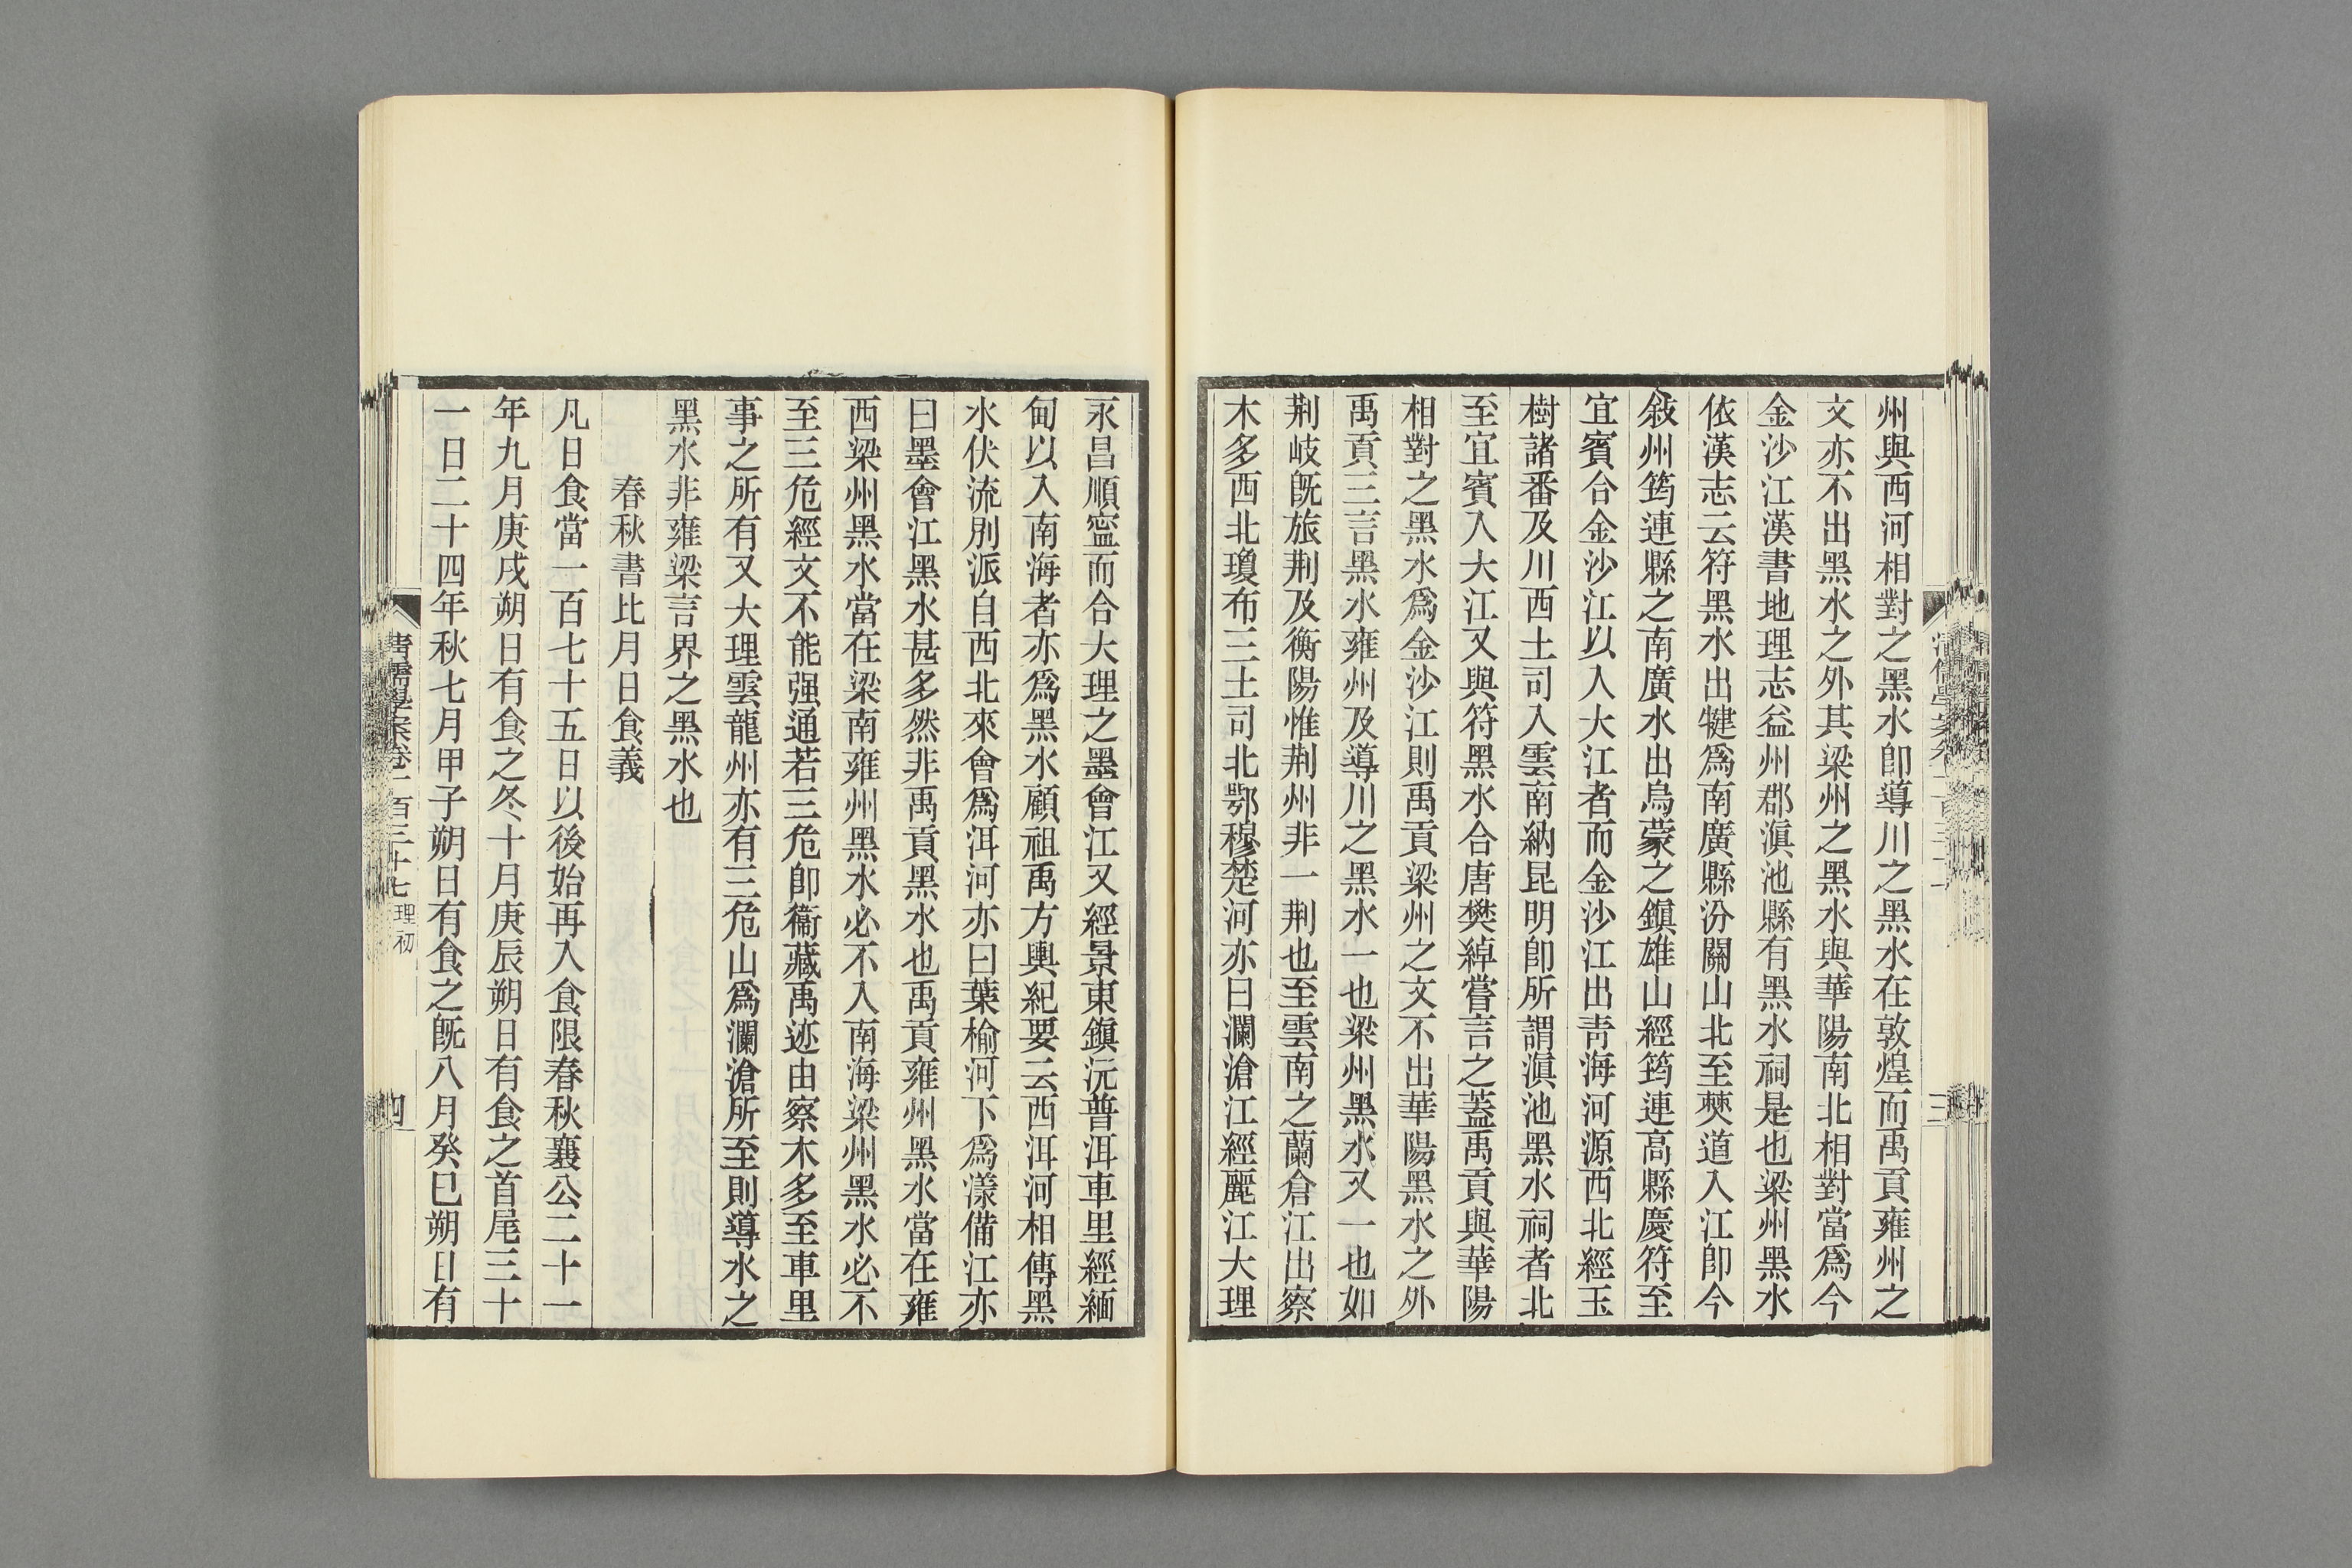 州與西河相對之黑水卽導川之黑水在敦煌而禹貢雍州之
文亦不出黑水之外其梁州之黑水與華陽南北相對當爲今
金沙江漢書地理志益州郡滇池縣有黑水祠是也梁州黑水
依漢志云符黑水出犍爲南廣縣汾關山北至僰道入江卽今
敍州筠連縣之南廣水出烏蒙之鎭雄山經筠連高縣慶符至
宜賓合金沙江以入大江者而金沙江出靑海河源西北經玉
樹諸番及川西土司入雲南納昆明卽所謂滇池黑水祠者北
至宜賓入大江又與符黑水合唐樊綽嘗言之蓋禹貢與華陽
相對之黑水爲金沙江則禹貢梁州之文不出華陽黑水之外
禹貢三言黑水雍州及導川之黑水一也梁州黑水又一也如
荆岐旣旅荆及衡陽惟荆州非一荆也至雲南之蘭倉江出察
木多西北瓊布三土司北鄂穆楚河亦曰瀾滄江經麗江大理
永昌順寧而合大理之墨會江又經景東鎭沅普洱車里經緬
甸以入南海者亦爲黑水顧祖禹方輿紀要云西洱河相傳黑
水伏流別派自西北來會爲洱河亦曰葉榆河下爲漾備江亦
曰墨會江黑水甚多然非禹貢黑水也禹貢雍州黑水當在雍
西梁州黑水當在梁南雍州黑水必不入南海梁州黑水必不
至三危經文不能强通若三危卽衞藏禹迹由察木多至車里
事之所有又大理雲龍州亦有三危山爲瀾滄所至則導水之
黑水非雍梁言界之黑水也
春秋書比月日食義
凡日食當一百七十五日以後始再入食限春秋襄公二十一
年九月庚戌朔日有食之冬十月庚辰朔日有食之首尾三十
一日二十四年秋七月甲子朔日有食之旣八月癸巳朔日有
淸儒學案卷一百三十七 理初
四
三